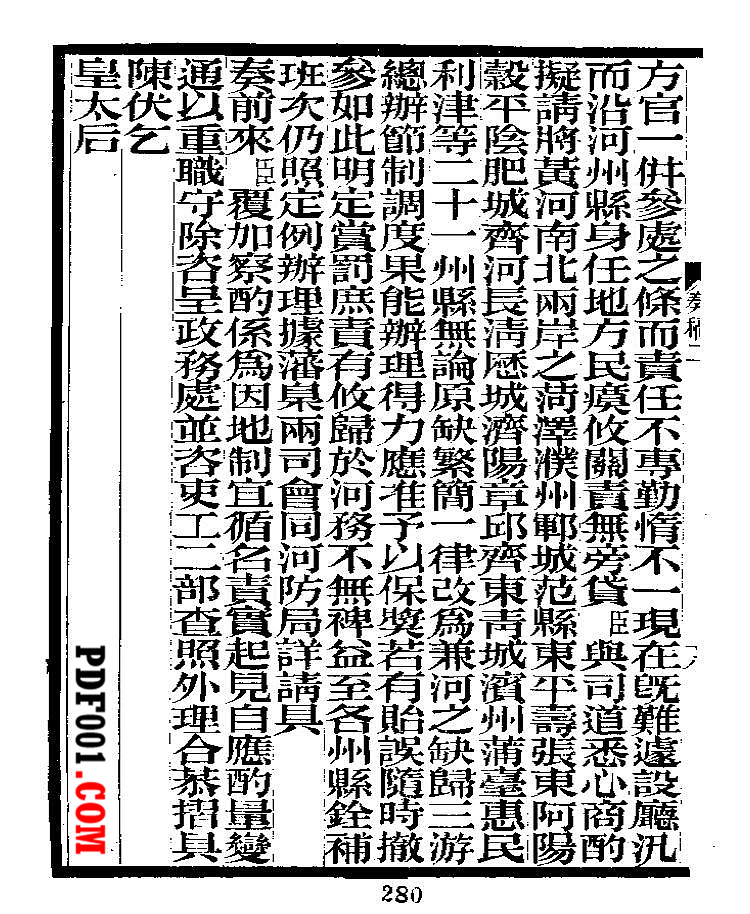 方官一併參處之條而責任不專勤惰不一現在旣難遽設廳汛
而沿河州縣身任地方民瘼攸關責無旁貸臣與司道悉心商酌
擬請將黃河南北兩岸之菏澤濮州鄆城范縣東平壽張東阿陽
穀平陰肥城齊河長淸歷城濟陽章邱齊東靑城濱州蒲臺惠民
利津等二十一州縣無論原缺繁簡一律改爲兼河之缺歸三游
總辦節制調度果能辦理得力應准予以保獎若有貽誤隨時撤
參如此明定賞罰庶責有攸歸於河務不無裨益至各州縣銓補
班次仍照定例辦理據藩臬兩司會同河防局詳請具
奏前來臣覆加察酌係爲因地制宜循名責實起見自應酌量變
通以重職守除咨呈政務處並咨吏工二部查照外理合恭摺具
陳伏乞
皇太后
PDF001.COM
280